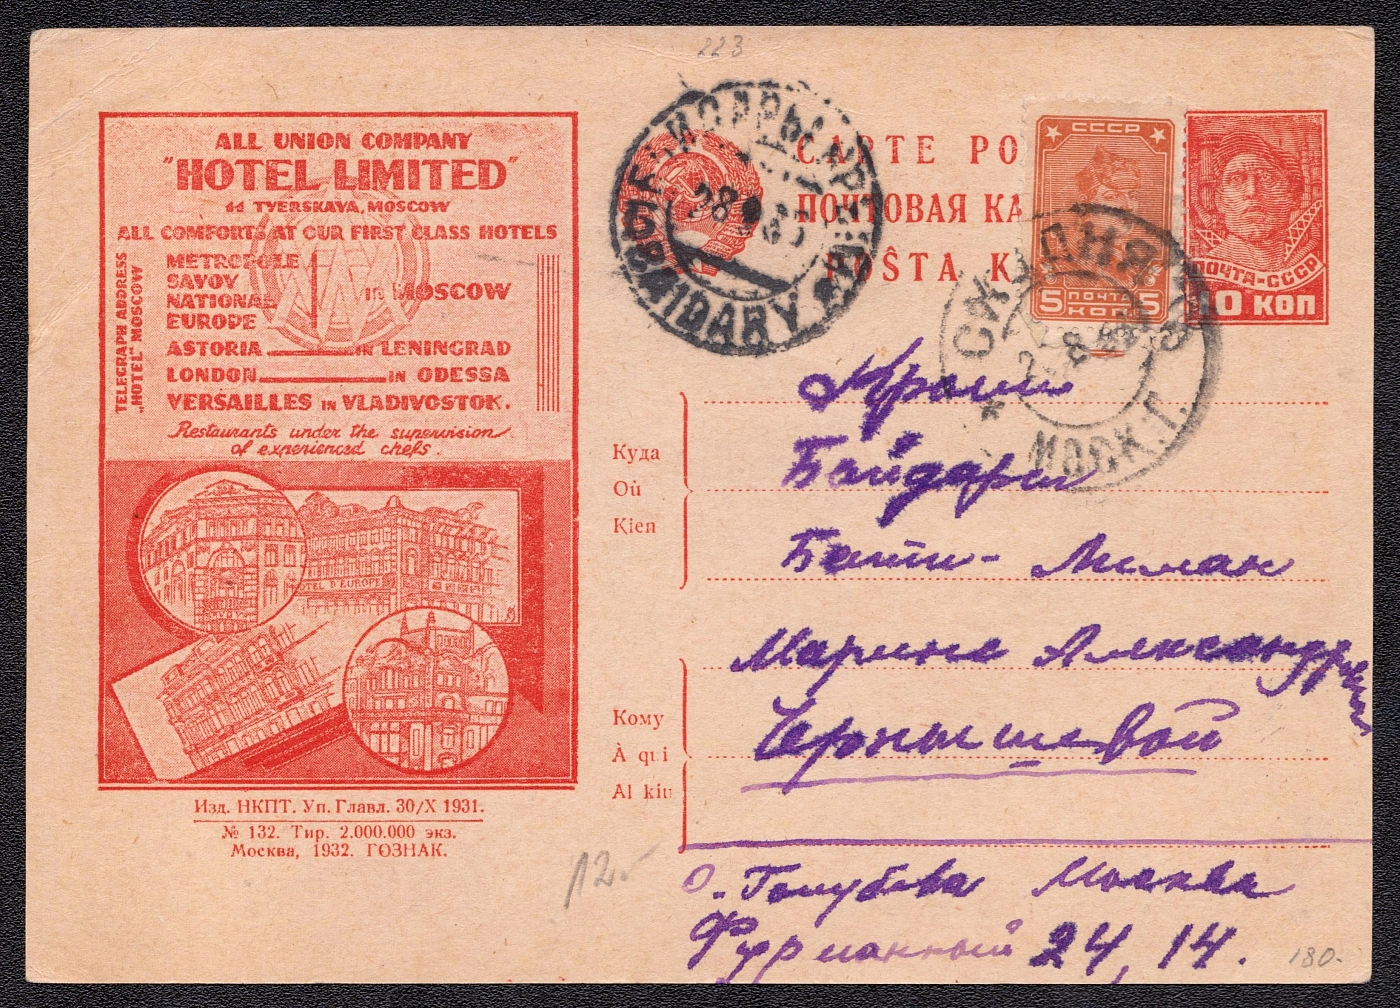 223
ALL UNION COMPANY
"HOTEL LIMITED"
44 TVERSKAYA, MOSCOW
ALL COMFORTS AT OUR FIRST CLASS HOTELS
TELEGRAPH ADDRESS
"HOTEL" MOSCOW
METROPOLE
SAVOY
NATIONAL
EUROPE
IN MOSCOW
ASTORIA IN LENINGRAD
LONDON IN ODESSA
VERSAILLES IN VLADIVOSTOK.
Restaurants under the supervision
of experienced chefs.
HOTEL D'EUROPE
Изд. НКПТ. Уп. Главл. 30/X 1931.
№ 132. Тир. 2.000.000 экз.
Москва, 1932. ГОЗНАК.
CARTE PO
ПОЧТОВАЯ КА
POŜTA K
СССР
5 ПОЧТА 5
КОП
ПОЧТА-СССР
10 КОП
BAJDARY
28
СХОДНЯ
МОСК. Г.
Куда
Où
Kien
Крым
Байдары
Бати-Лиман
Кому
À qui
Al kiu
Марине Александровне
Чернышевой
О. Голубева Москва
Фурманный 24, 14.
12-
180-